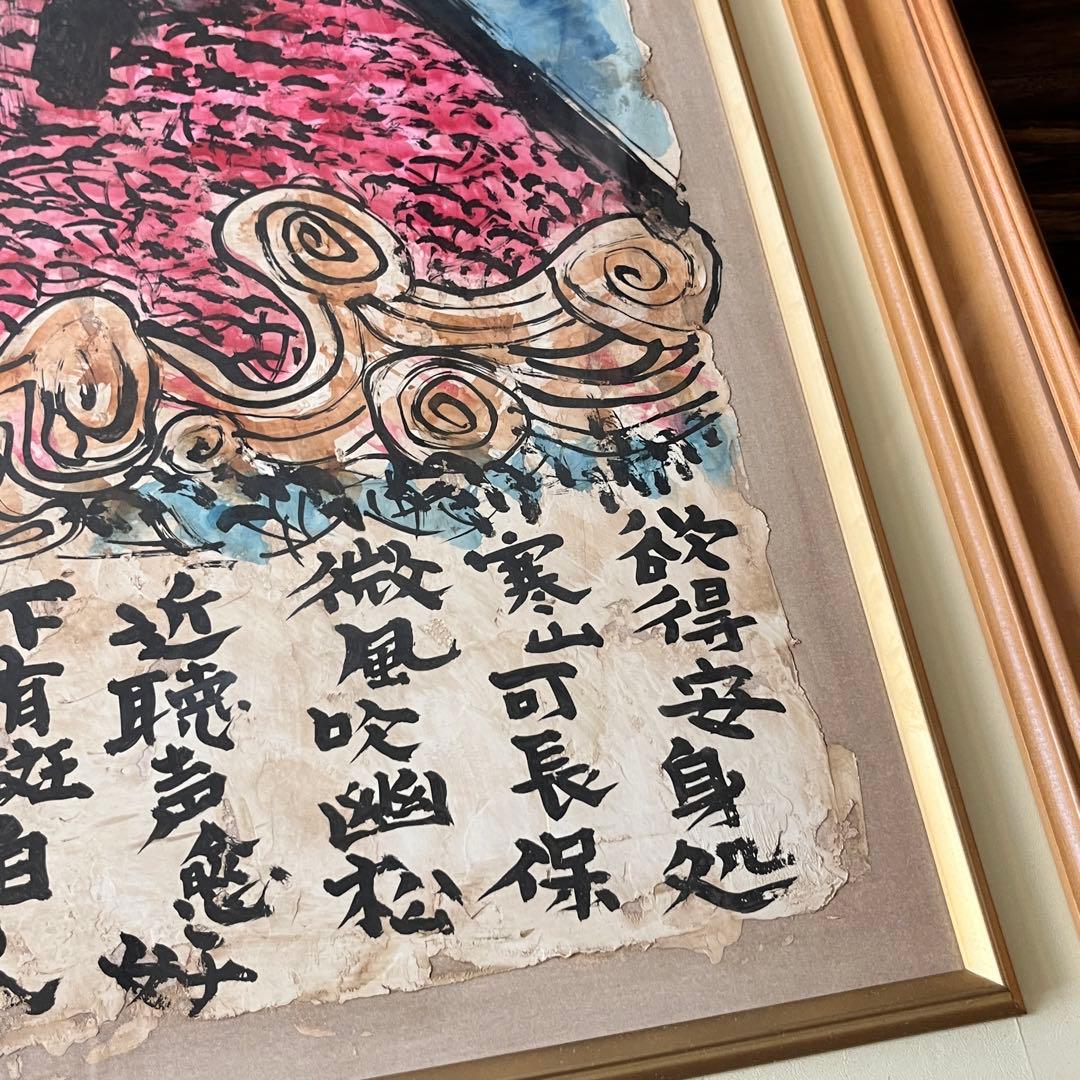 欲得安身处
寒山可長保
微風吹幽松
近聴声愈好
下有斑白人